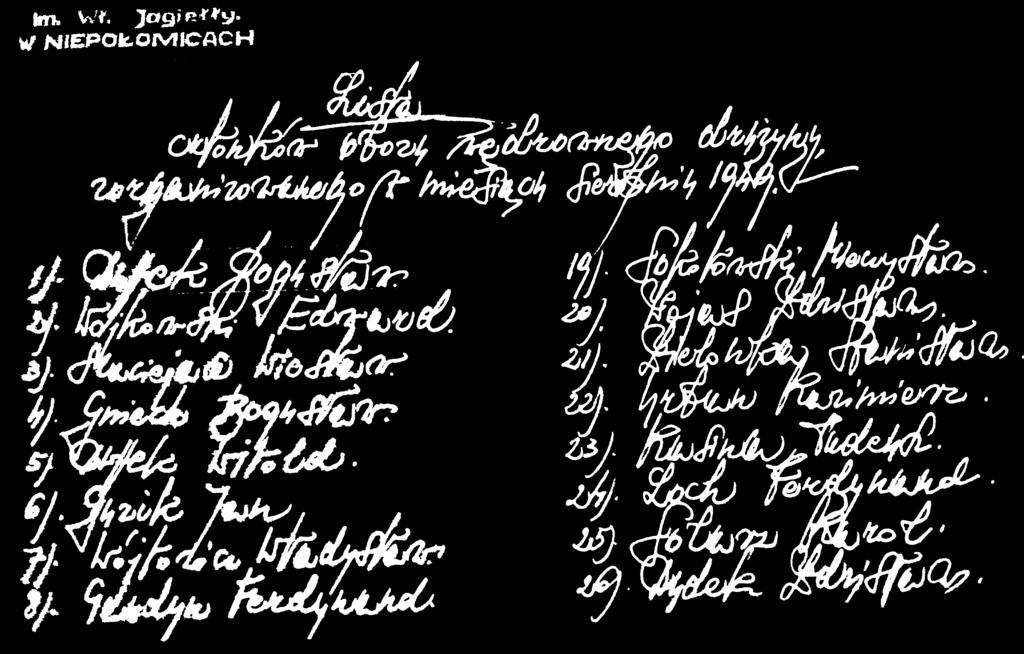 im. Wł. Jagiełły.
W NIEPOŁOMICACH
Lista
członków obozu wędrownego drużyny,
zorganizowanego w miesiącu sierpniu 1949.
1). Bogusław.
2). Wójkowski Edward.
3). Wiesław.
4). Bogusław.
5) Witold.
6). Guzik Jan
7). Wójtowicz Władysław.
8). Ferdynand.
19). Sokołowski Mieczysław.
20). Zdzisław.
21). Stanisław.
22). Urban Kazimierz.
23). Kasina Tadeusz.
24). Loch Ferdynand.
25). Karol.
26). Dudek Zdzisław.